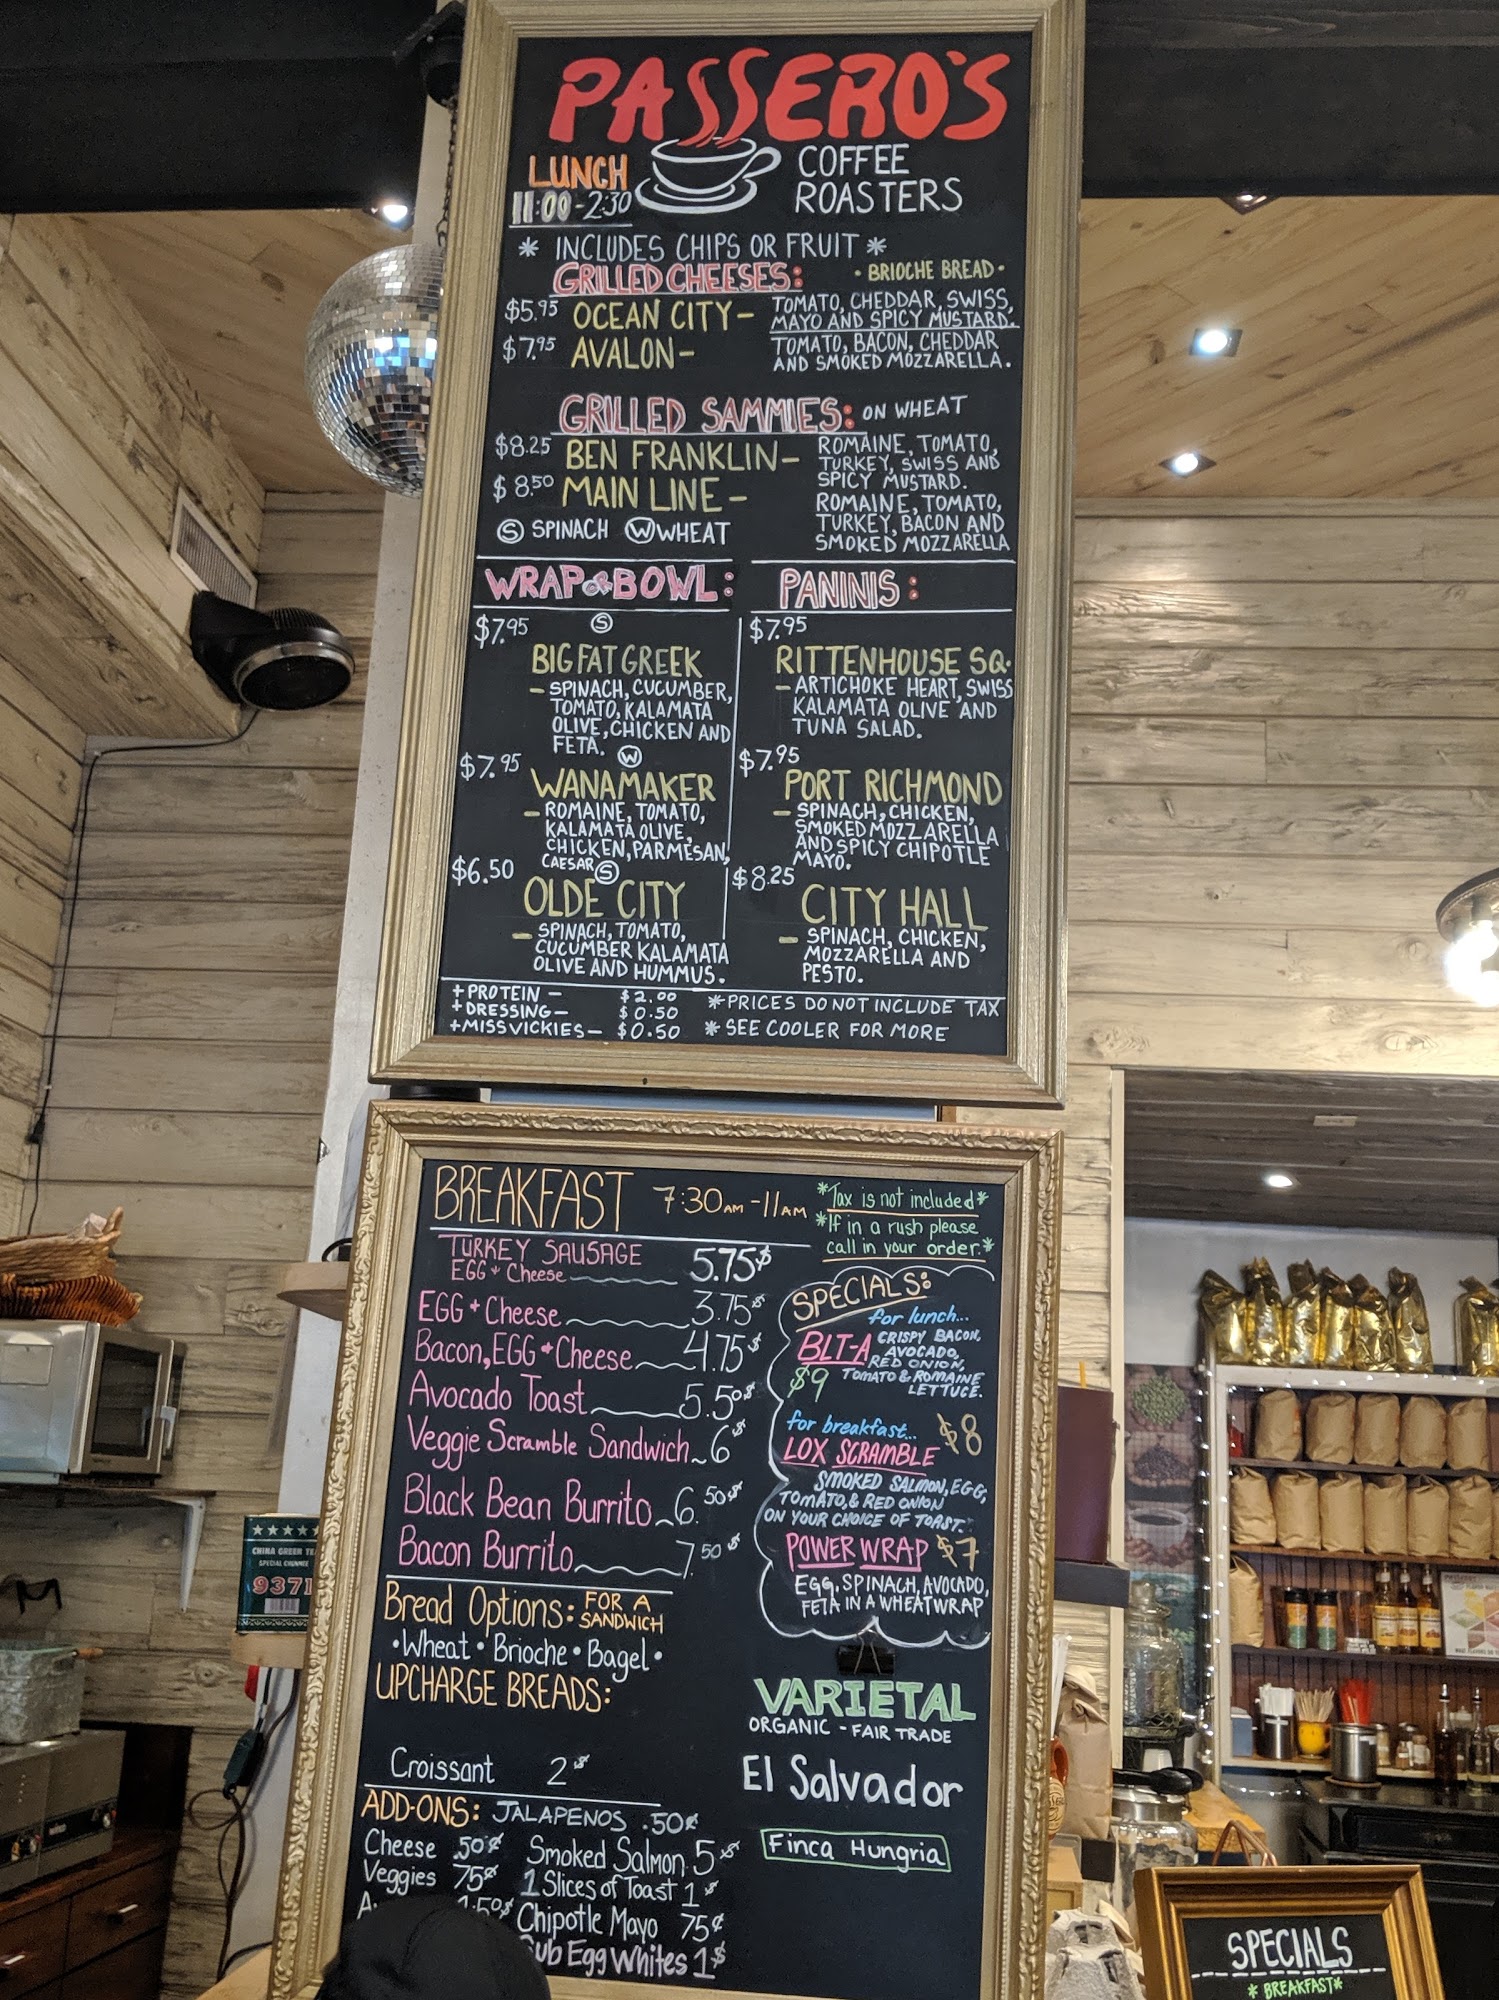 PASSERO'S
COFFEE
ROASTERS
LUNCH
11:00-2:30
* INCLUDES CHIPS OR FRUIT *
GRILLED CHEESES: • BRIOCHE BREAD •
$5.95 OCEAN CITY – TOMATO, CHEDDAR, SWISS,
MAYO AND SPICY MUSTARD.
$7.95 AVALON – TOMATO, BACON, CHEDDAR
AND SMOKED MOZZARELLA.
GRILLED SAMMIES: ON WHEAT
$8.25 BEN FRANKLIN – ROMAINE, TOMATO,
TURKEY, SWISS AND
SPICY MUSTARD.
$8.50 MAIN LINE – ROMAINE, TOMATO,
TURKEY, BACON AND
SMOKED MOZZARELLA
Ⓢ SPINACH Ⓦ WHEAT
WRAP OR BOWL:
$7.95 Ⓢ
BIG FAT GREEK
– SPINACH, CUCUMBER,
TOMATO, KALAMATA
OLIVE, CHICKEN AND
FETA.
$7.95 Ⓦ
WANAMAKER
– ROMAINE, TOMATO,
KALAMATA OLIVE,
CHICKEN, PARMESAN,
CAESAR
$6.50 Ⓢ
OLDE CITY
– SPINACH, TOMATO,
CUCUMBER KALAMATA
OLIVE AND HUMMUS.
PANINIS:
$7.95
RITTENHOUSE SQ.
– ARTICHOKE HEART, SWISS
KALAMATA OLIVE AND
TUNA SALAD.
$7.95
PORT RICHMOND
– SPINACH, CHICKEN,
SMOKED MOZZARELLA
AND SPICY CHIPOTLE
MAYO.
$8.25
CITY HALL
– SPINACH, CHICKEN,
MOZZARELLA AND
PESTO.
+ PROTEIN – $2.00
+ DRESSING – $0.50
+ MISS VICKIES – $0.50
* PRICES DO NOT INCLUDE TAX
* SEE COOLER FOR MORE
BREAKFAST 7:30AM-11AM
*Tax is not included*
*If in a rush please
call in your order.*
TURKEY SAUSAGE
EGG + Cheese 5.75$
EGG + Cheese 3.75$
Bacon, EGG + Cheese 4.75$
Avocado Toast 5.50$
Veggie Scramble Sandwich 6$
Black Bean Burrito 6.50$
Bacon Burrito 7.50$
Bread Options: FOR A
SANDWICH
• Wheat • Brioche • Bagel •
UPCHARGE BREADS:
Croissant 2$
ADD-ONS: JALAPENOS .50¢
Cheese .50¢
Veggies 75¢
1.50$
Smoked Salmon 5$
1 Slices of Toast 1$
Chipotle Mayo 75¢
Sub Egg Whites 1$
SPECIALS:
for lunch...
BLT-A CRISPY BACON,
AVOCADO,
RED ONION,
$9 TOMATO & ROMAINE
LETTUCE.
for breakfast... $8
LOX SCRAMBLE
SMOKED SALMON, EGG,
TOMATO, & RED ONION
ON YOUR CHOICE OF TOAST.
POWER WRAP $7
EGG, SPINACH, AVOCADO,
FETA IN A WHEAT WRAP
VARIETAL
ORGANIC - FAIR TRADE
El Salvador
Finca Hungria
★★★★
CHINA GREEN TE
SPECIAL CHUNMEE
9371
SPECIALS
* BREAKFAST*